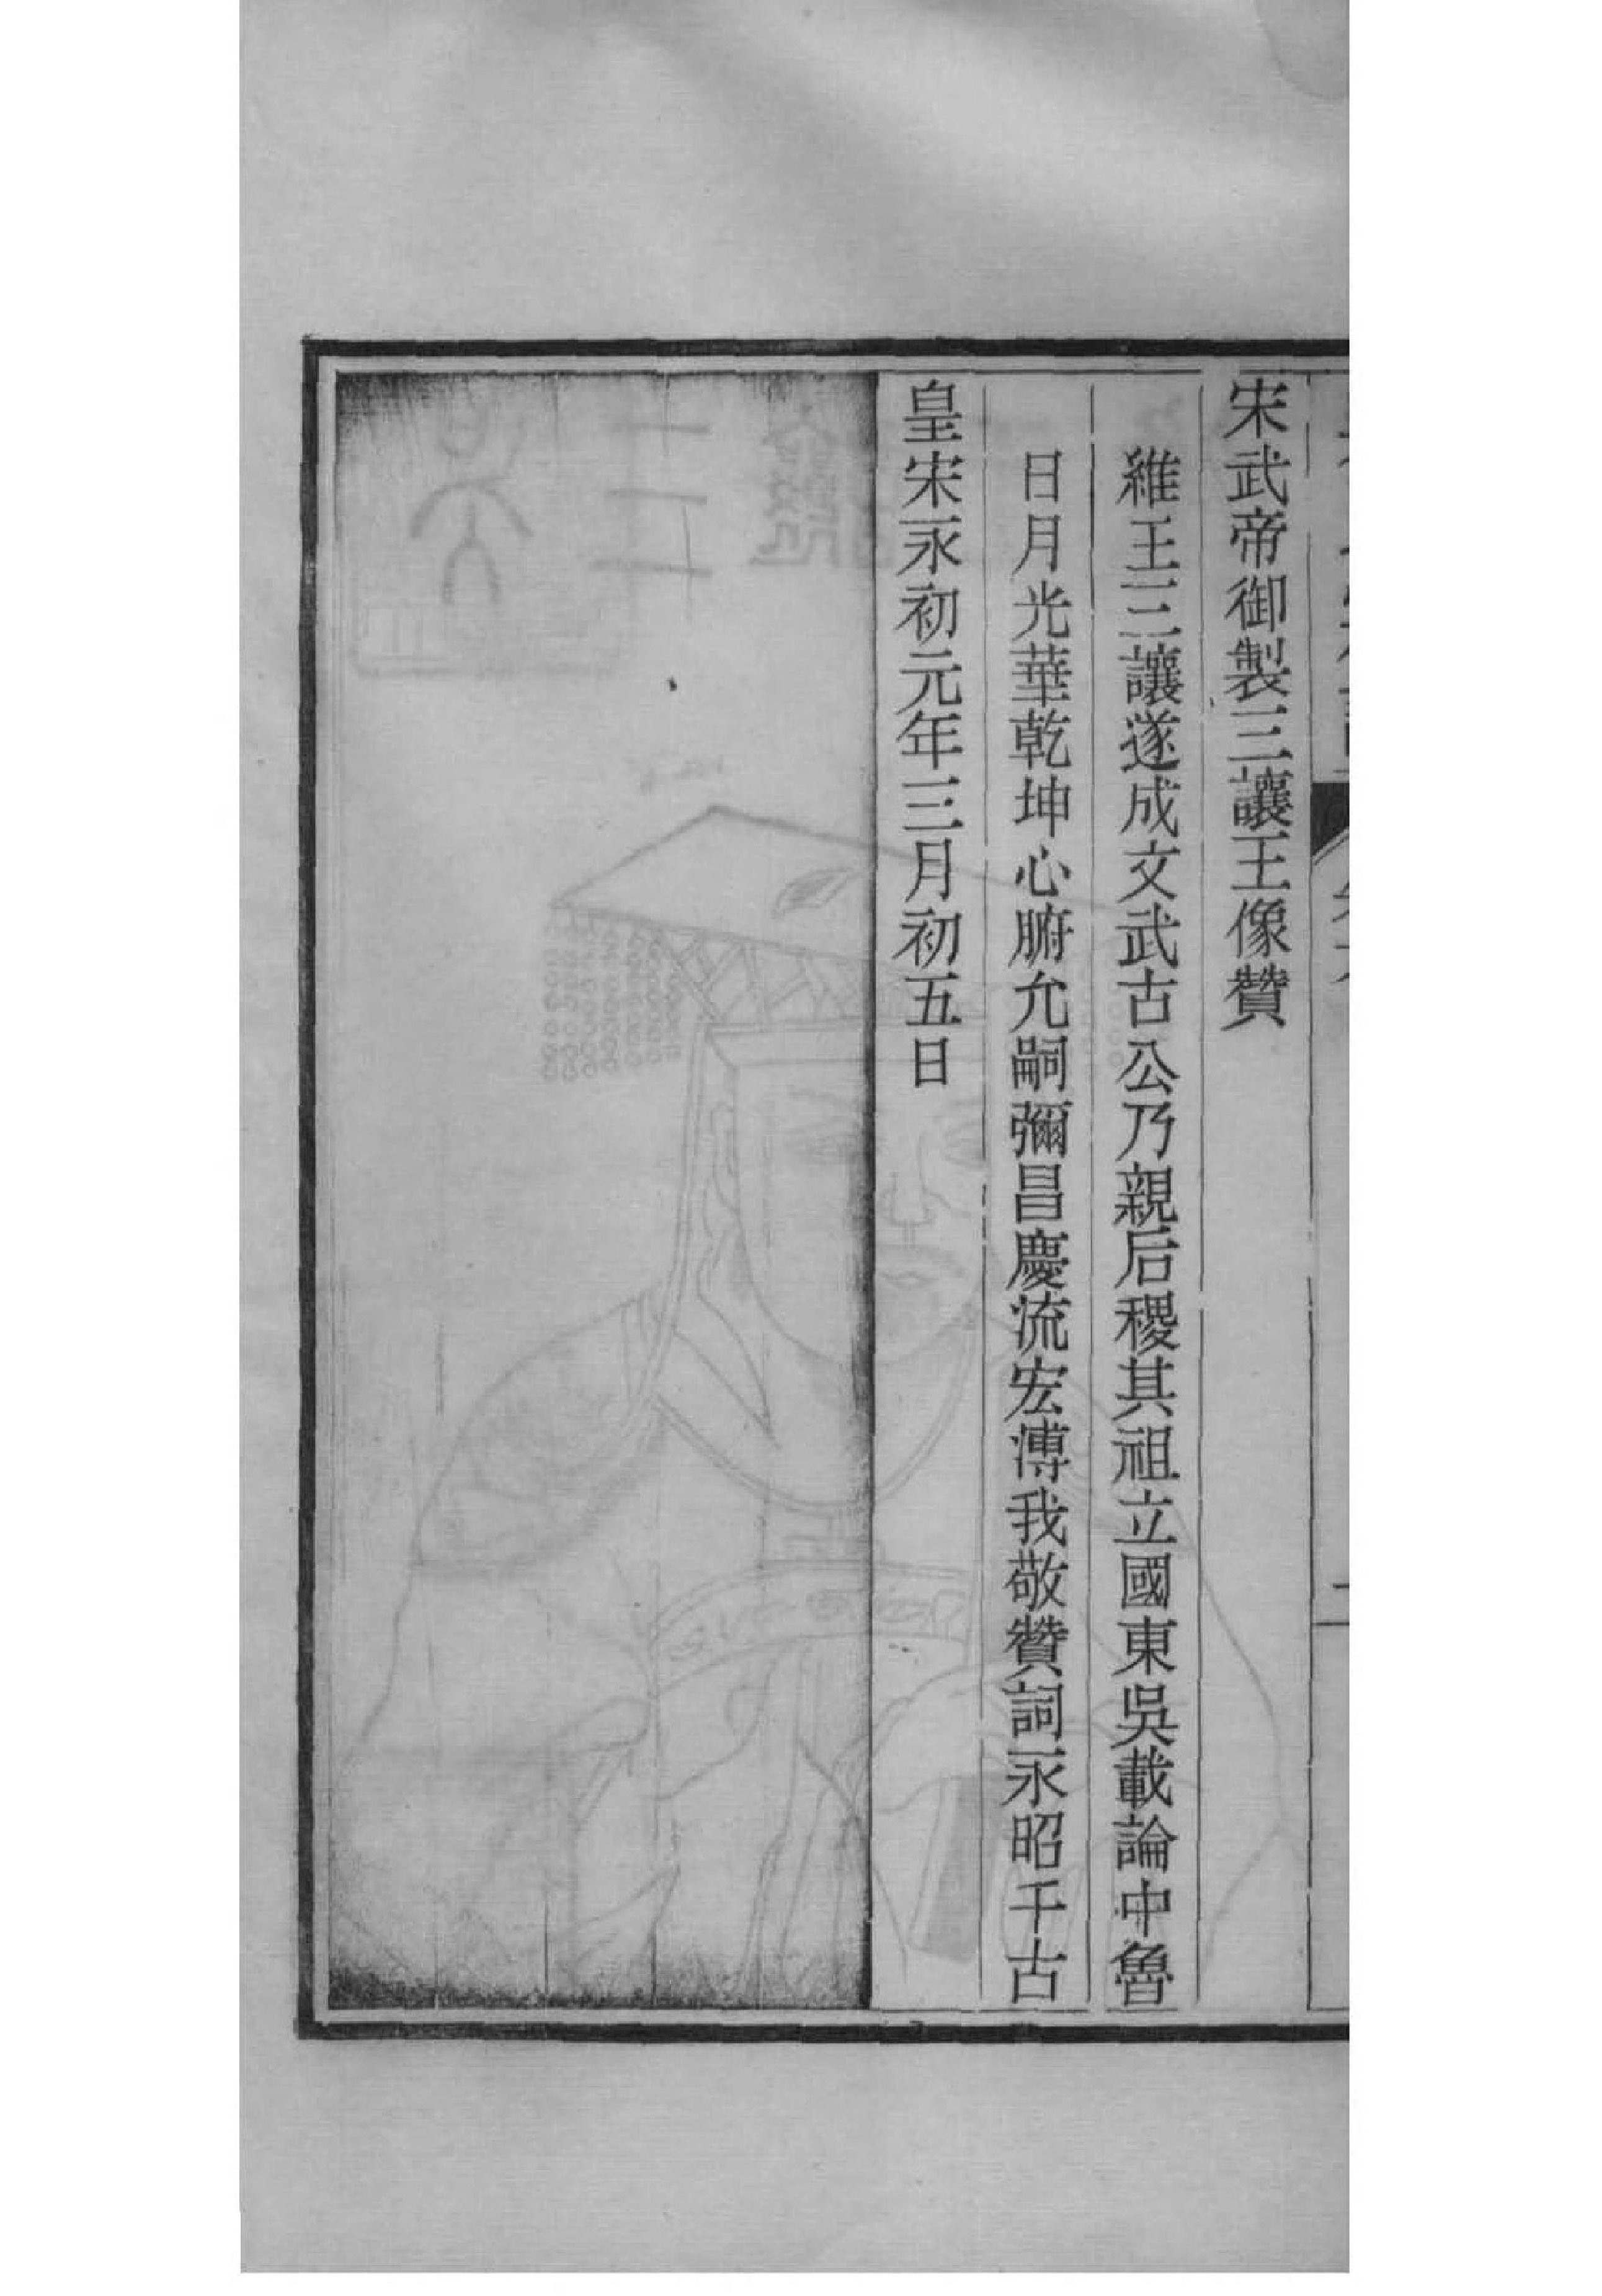 宋武帝御製三讓王像贊
維王三讓遂成文武古公乃親后稷其祖立國東吳載論中魯
日月光華乾坤心腑允嗣彌昌慶流宏溥我敬贊詞永昭千古
皇宋永初元年三月初五日